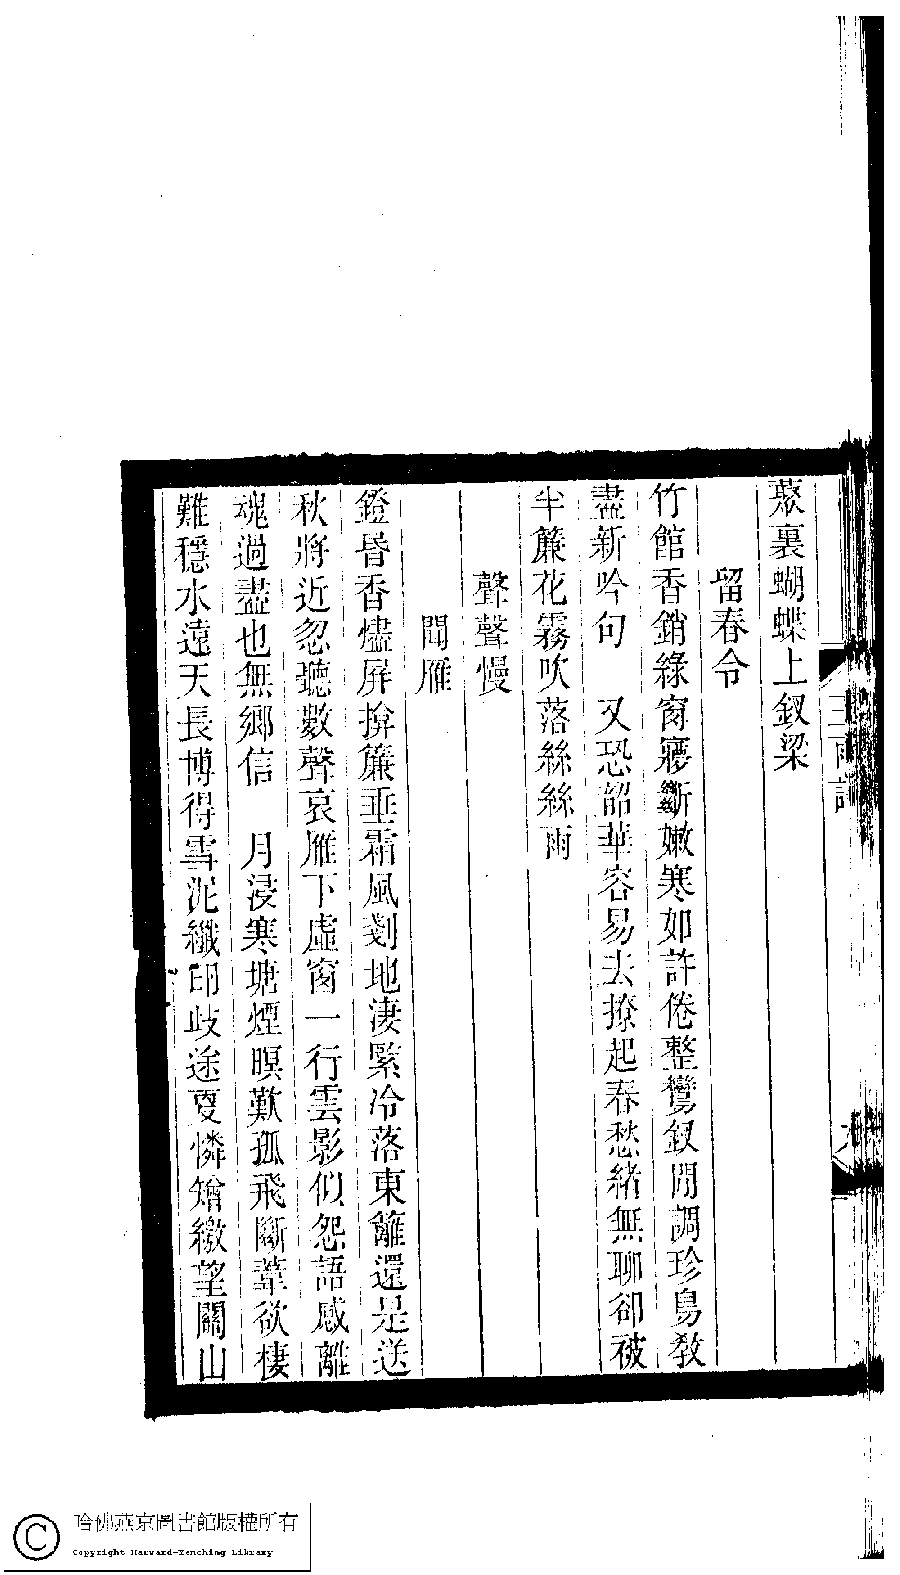 蘂裏蝴蝶上釵梁
留春令
竹館香銷綠窗寱斷嫩寒如許倦整鸞釵閒調珍鳥教
盡新吟句　又恐韶華容易去撩起春愁緒無聊卻被
半簾花霧吹落絲絲雨
聲聲慢
聞雁
鐙昏香燼屏掩簾垂霜風剗地淒緊冷落東籬還是送
秋將近忽聽數聲哀雁下虛窗一行雲影似怨語感離
魂過盡也無鄉信　月浸寒塘煙暝歎孤飛斷葦欲棲
難穩水遠天長博得雪泥纖印歧途更憐矰繳望關山
哈佛燕京圖書館版權所有
Copyright Harvard-Yenching Library